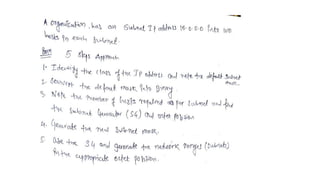 A organization has an Subnet IP address 15.0.0.0 into 100
hosts in each subnet.
5 Steps Approach
1. Identify the class of the IP address and note the default Subnet
mask.
2. Convert the default mask into binary
3. Note the number of hosts required as per subnet and find
the subnet Generator (SG) and octet position
4. Generate the new subnet mask.
5. Use the SG and generate the network ranges (Subnets)
in the appropriate octet position.